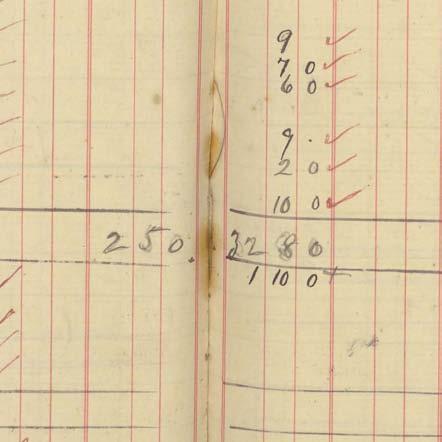 9 ✓
7 0 ✓
6 0 ✓
9 . ✓
2 0 ✓
10 0 ✓
2 5 0. 32 8 0
1 10 0